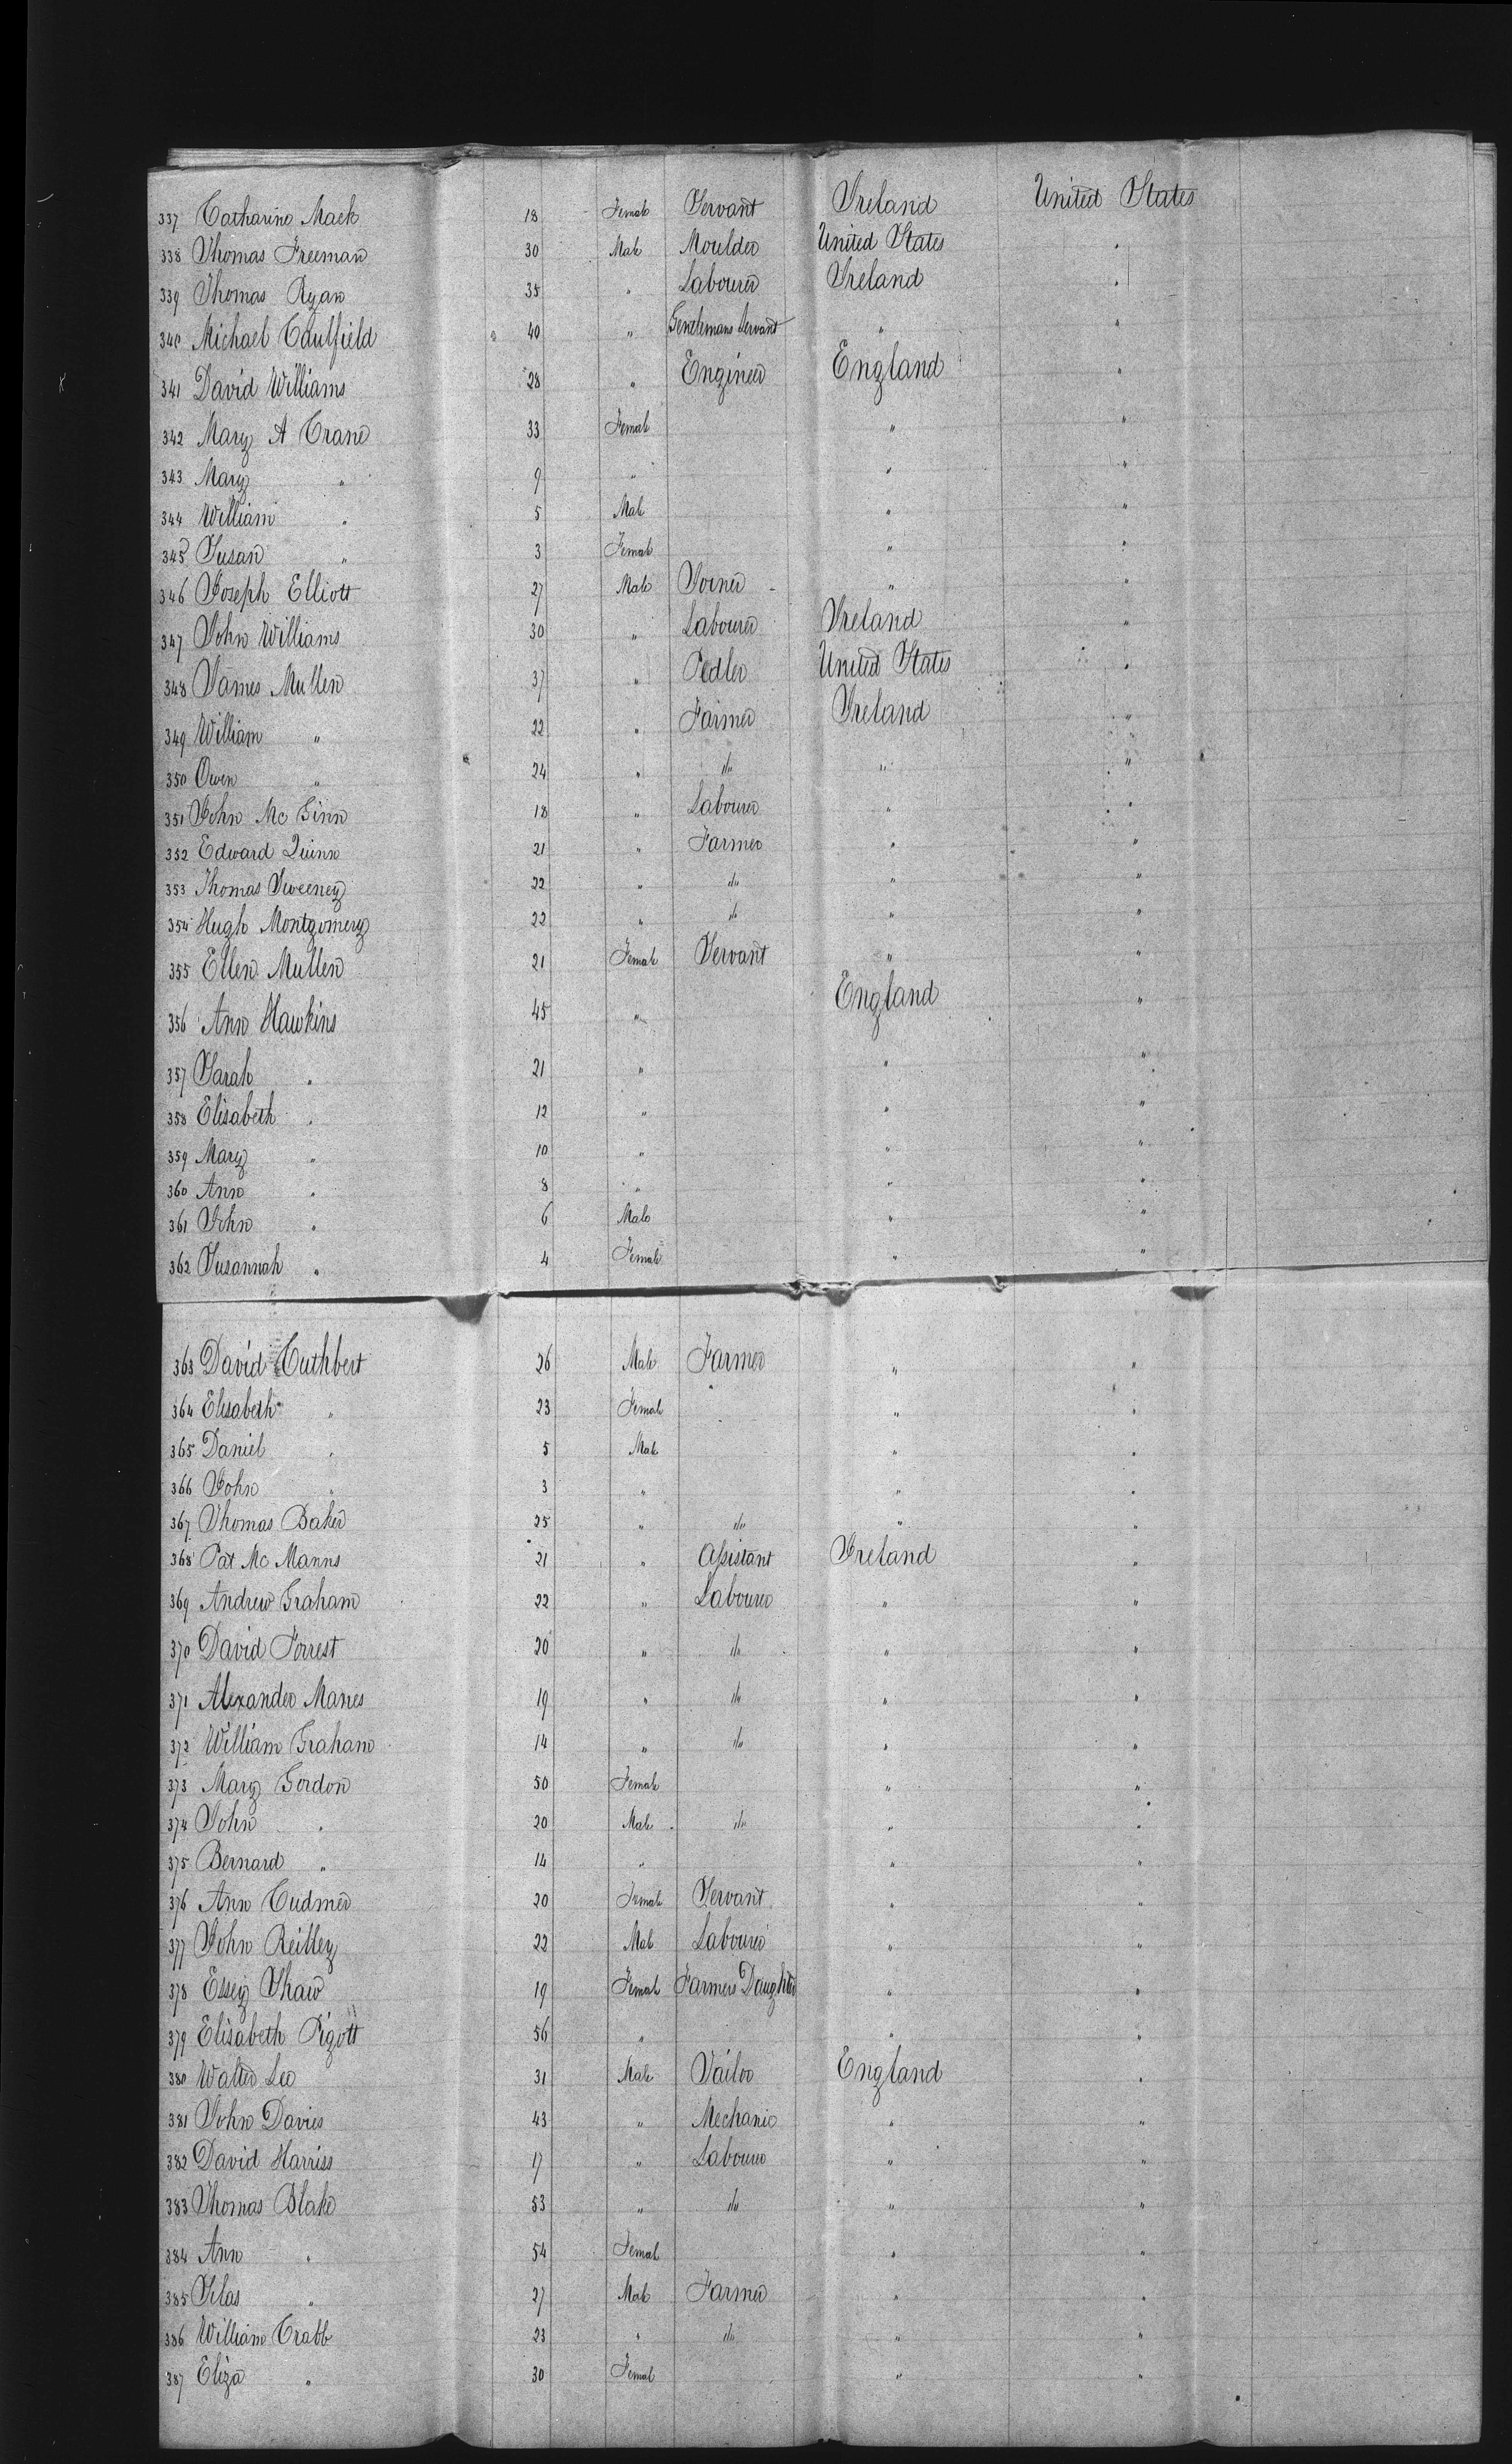 337 Catharine Mack 18 Female Servant Ireland United States
338 Thomas Freeman 30 Male Moulder United States "
339 Thomas Ryan 35 " Labourer Ireland "
340 Michael Caulfield 40 " Gentlemans Servant " "
341 David Williams 28 " Engineer England "
342 Mary A Crane 33 Female " "
343 Mary " 9 " " "
344 William " 5 Male " "
345 Susan " 3 Female " "
346 Joseph Elliott 27 Male Joiner " "
347 John Williams 30 " Labourer Ireland "
348 James Mullen 37 " Pedler United States "
349 William " 22 " Farmer Ireland "
350 Owen " 24 " do " "
351 John Mc Ginn 18 " Labourer " "
352 Edward Quinn 21 " Farmer " "
353 Thomas Sweeney 22 " do " "
354 Hugh Montgomery 22 " do " "
355 Ellen Mullen 21 Female Servant " "
356 Ann Hawkins 45 " England "
357 Sarah " 21 " " "
358 Elisabeth " 12 " " "
359 Mary " 10 " " "
360 Ann " 8 " " "
361 John " 6 Male " "
362 Susannah " 4 Female " "
363 David Cuthbert 26 Male Farmer " "
364 Elisabeth " 23 Female " "
365 Daniel " 5 Male " "
366 John " 3 " " "
367 Thomas Baker 25 " do " "
368 Pat Mc Manns 21 " Assistant Ireland "
369 Andrew Graham 22 " Labourer " "
370 David Forrest 20 " do " "
371 Alexander Manes 19 " do " "
372 William Graham 14 " do " "
373 Mary Gordon 50 Female " "
374 John " 20 Male do " "
375 Bernard " 14 " " "
376 Ann Cudmer 20 Female Servant " "
377 John Reilley 22 Male Labourer " "
378 Essey Shaw 19 Female Farmers Daughter " "
379 Elisabeth Pigott 56 " " "
380 Walter Lee 31 Male Tailor England "
381 John Davies 43 " Mechanic " "
382 David Harriss 17 " Labourer " "
383 Thomas Blake 53 " do " "
384 Ann " 54 Female " "
385 Silas " 27 Male Farmer " "
386 William Crabb 23 " do " "
387 Eliza " 30 Female " "